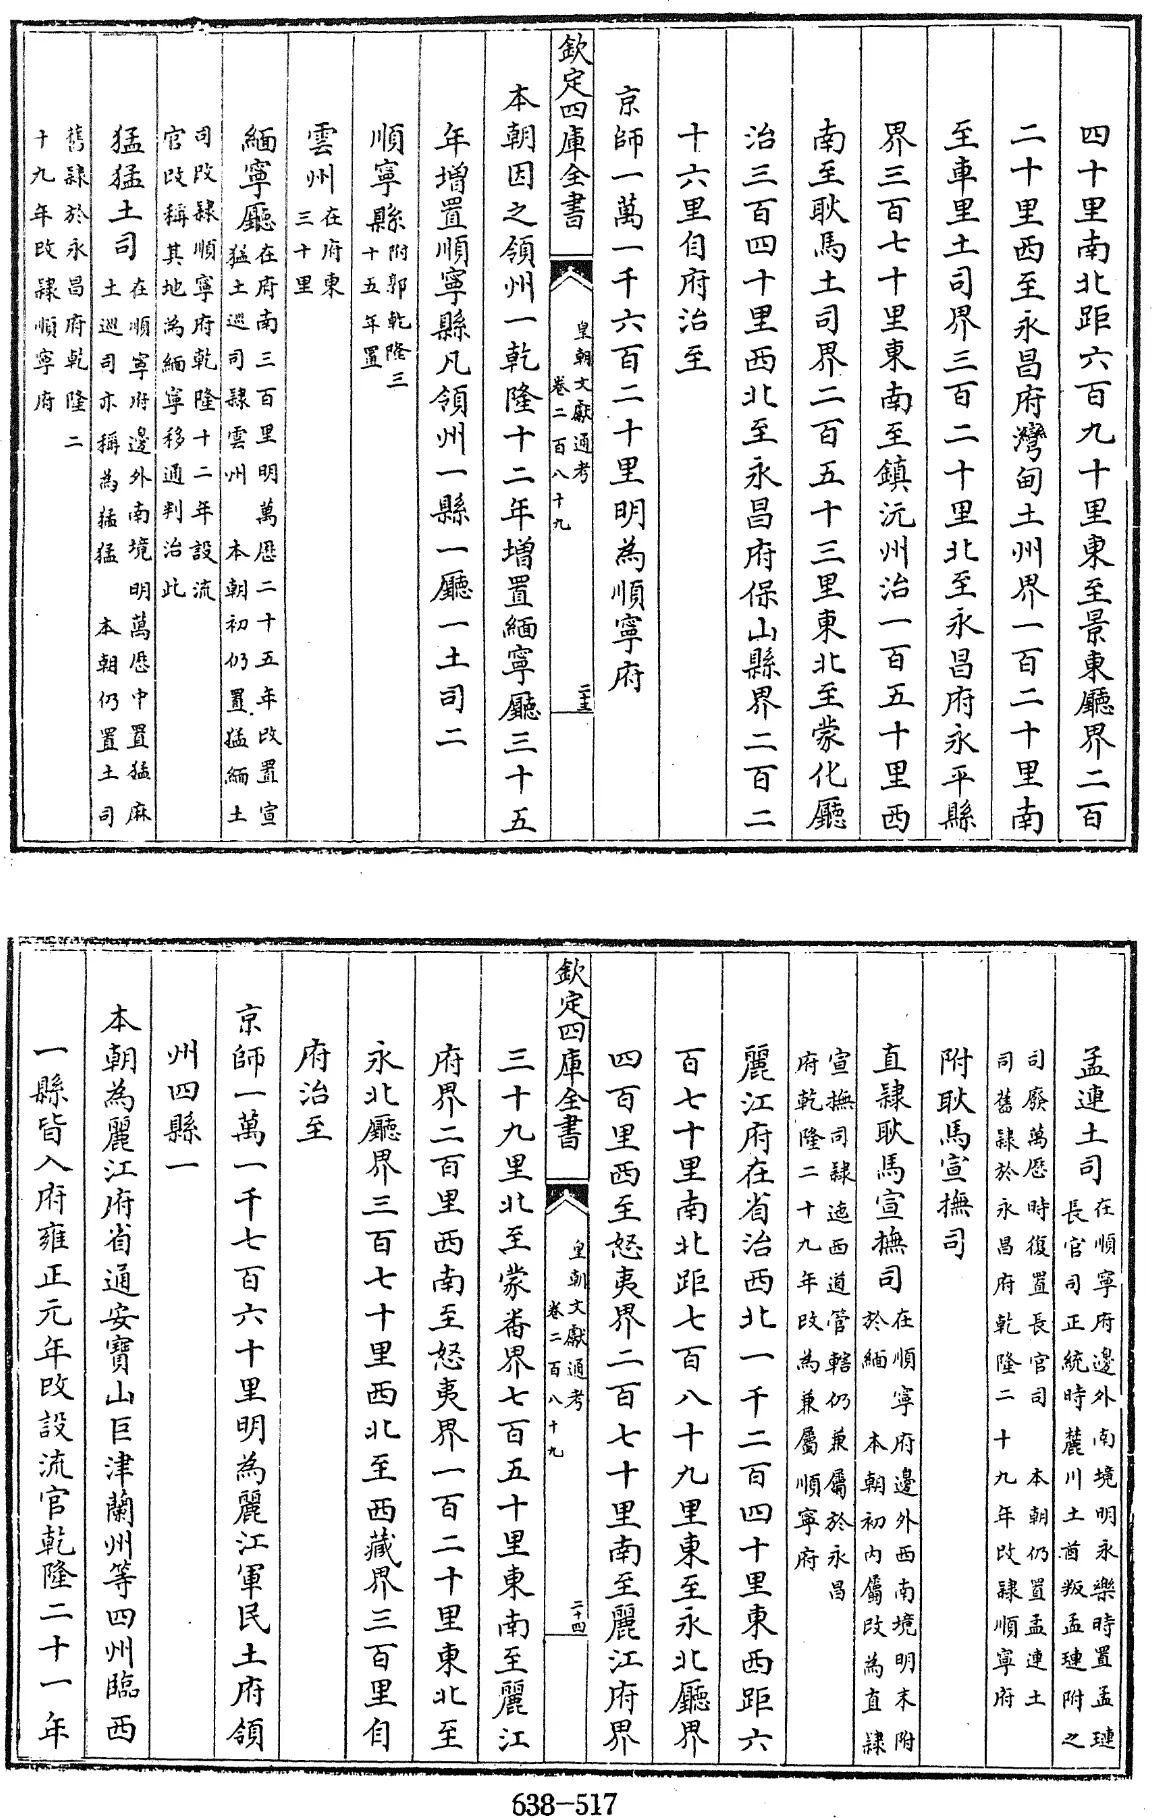 四十里南北距六百九十里東至景東廳界二百
二十里西至永昌府灣甸土州界一百二十里南
至車里土司界三百二十里北至永昌府永平縣
界三百七十里東南至鎮沅州治一百五十里西
南至耿馬土司界二百五十三里東北至蒙化廳
治三百四十里西北至永昌府保山縣界二百二
十六里自府治至
京師一萬一千六百二十里明為順寧府
欽定四庫全書
皇朝文獻通考
卷二百八十九
二十三
本朝因之領州一乾隆十二年增置緬寧廳三十五
年增置順寧縣凡領州一縣一廳一土司二
順寧縣附郭乾隆三
十五年置
雲州在府東
三十里
緬寧廳在府南三百里明萬歷二十五年改置宣
猛土巡司隸雲州 本朝初仍置猛緬土
司改隸順寧府乾隆十二年設流
官改稱其地為緬寧移通判治此
猛猛土司在順寧府邊外南境明萬歷中置猛麻
土巡司亦稱為猛猛 本朝仍置土司
舊隸於永昌府乾隆二
十九年改隸順寧府
孟連土司在順寧府邊外南境明永樂時置孟璉
長官司正統時麓川土酋叛孟璉附之
司廢萬歷時復置長官司 本朝仍置孟連土
司舊隸於永昌府乾隆二十九年改隸順寧府
附耿馬宣撫司
直隸耿馬宣撫司在順寧府邊外西南境明末附
於緬 本朝初內屬改為直隸
宣撫司隸迤西道管轄仍兼屬於永昌
府乾隆二十九年改為兼屬順寧府
麗江府在省治西北一千二百四十里東西距六
百七十里南北距七百八十九里東至永北廳界
四百里西至怒夷界二百七十里南至麗江府界
欽定四庫全書
皇朝文獻通考
卷二百八十九
二十四
三十九里北至蒙番界七百五十里東南至麗江
府界二百里西南至怒夷界一百二十里東北至
永北廳界三百七十里西北至西藏界三百里自
府治至
京師一萬一千七百六十里明為麗江軍民土府領
州四縣一
本朝為麗江府省通安寶山巨津蘭州等四州臨西
一縣皆入府雍正元年改設流官乾隆二十一年
638-517